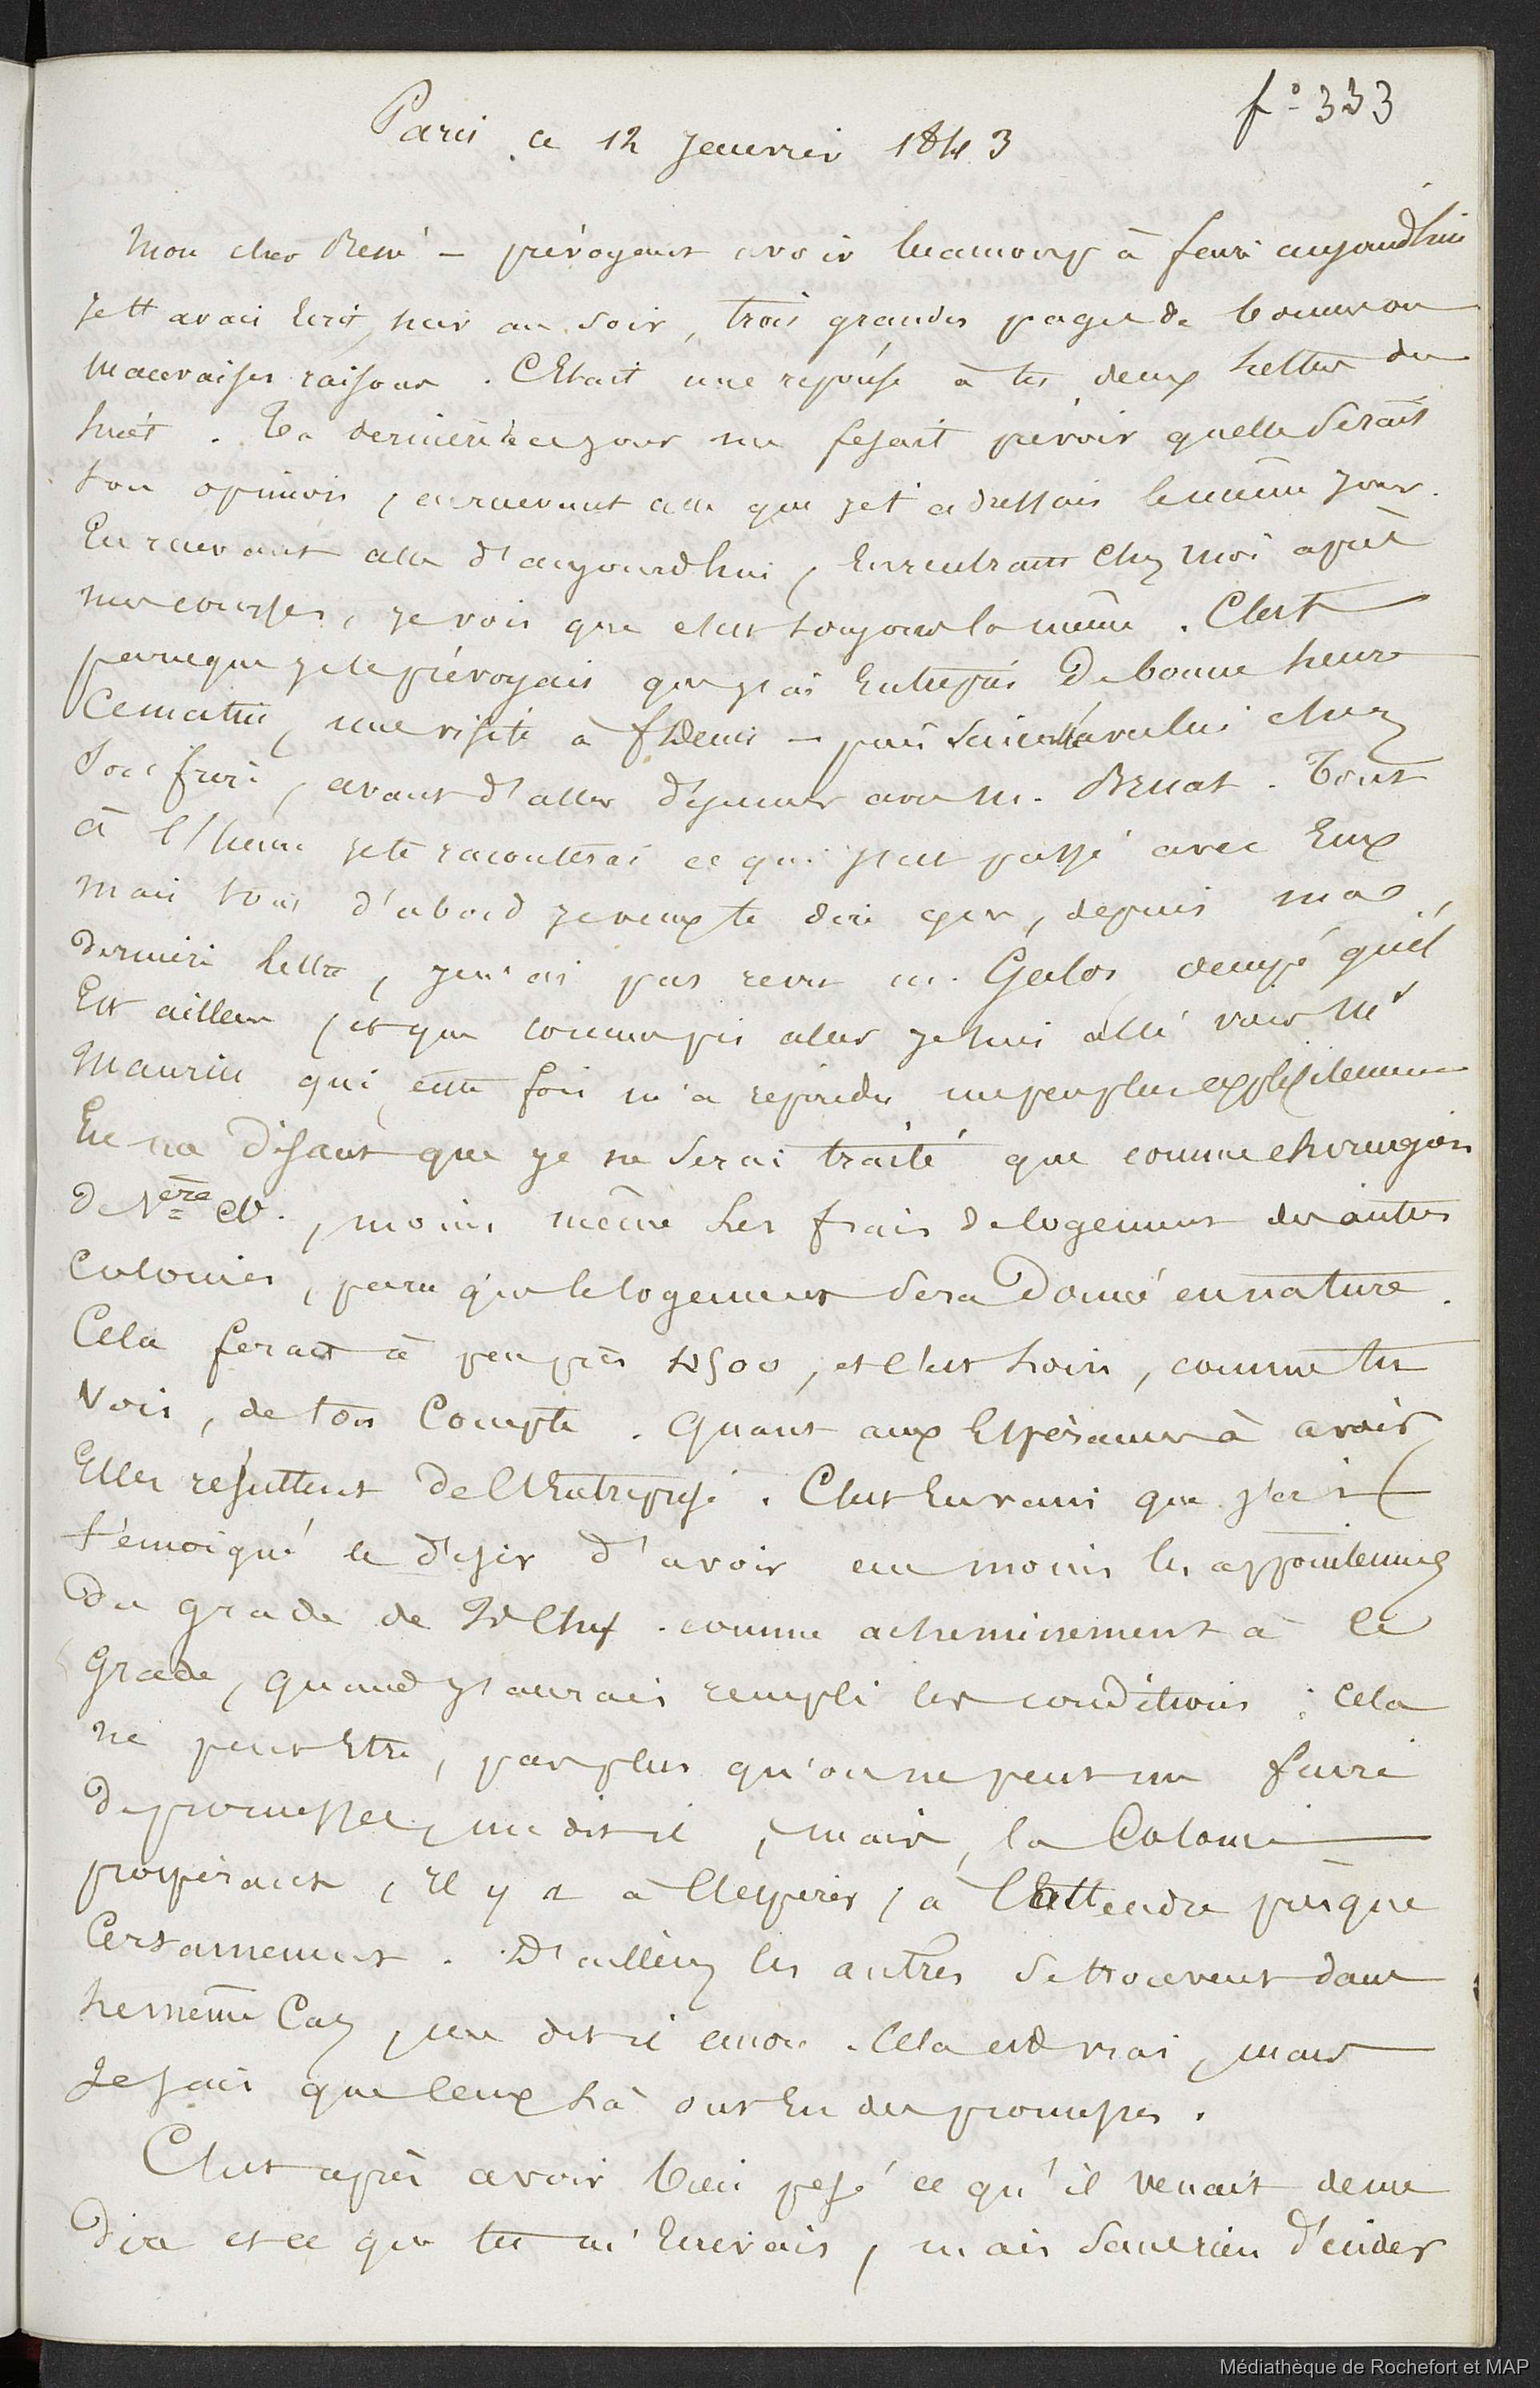 f° 333
Paris ce 12 Janvier 1843
Mon cher René — prévoyant avoir beaucoup à faire aujourdhui
je t'avais Ecrit, hier au soir, trois grandes pages de bonnes ou
mauvaises raisons. C'Etait une reponse à tes deux lettres du
huit. Ta dernière de ce jour me fesait prévoir quelle serait
ton opinion, en recevant celle que je t'adressais le même jour.
En recevant celle d'aujourdhui, En rentrant chez moi après
mes courses, je vois que c'est toujours la même. C'est
parceque je le prévoyais que j'ai Entrepris De bonne heure
Ce matin, une visite à fs Denis — puis avec lui chez
Son frère, avant d'aller déjeuner avec M. Bruat. Tout
à l'heure je te raconterai ce qui s'est passé avec Eux
mais tout d'abord je veux te dire que, depuis ma
dernière lettre, je n'ai pas revu M. Galos occupé qu'il
Est ailleurs, et que comme pis aller je suis allé voir Mr
Maurin qui cette fois m'a repondu un peu plus explicitement
En me Disant que je ne serai traité que comme chirurgien
De 1ère Cl., moins même les frais de logement des autres
Colonies, parce que le logement sera Donné en nature.
Cela ferait à peu près 4500, et c'est loin, comme tu
Vois, de ton Compte. Quant aux Espérances à avoir
Elles résultent De l'Entreprise. C'est En vain que j'ai
témoigné le désir d'avoir au moins les appointemens
Du grade de 2d Chef comme acheminement à ce
Grade, quand j'aurais rempli les conditions; cela
ne peut Etre, pas plus qu'on ne peut me faire
De promesses, me dit-il, mais, la Colonie
prospérant, Il y a à l'espérer, à l'attendre presque
Certainement. D'ailleurs les autres se trouvent dans
le même Cas, me dit-il encore. Cela est vrai, mais
Je sais que Ceux là ont Eu des promesses.
C'est après avoir bien pesé ce qu'il venait de me
Dire et ce que tu m'Ecrivais, mais sans rien décider
Médiathèque de Rochefort et MAP